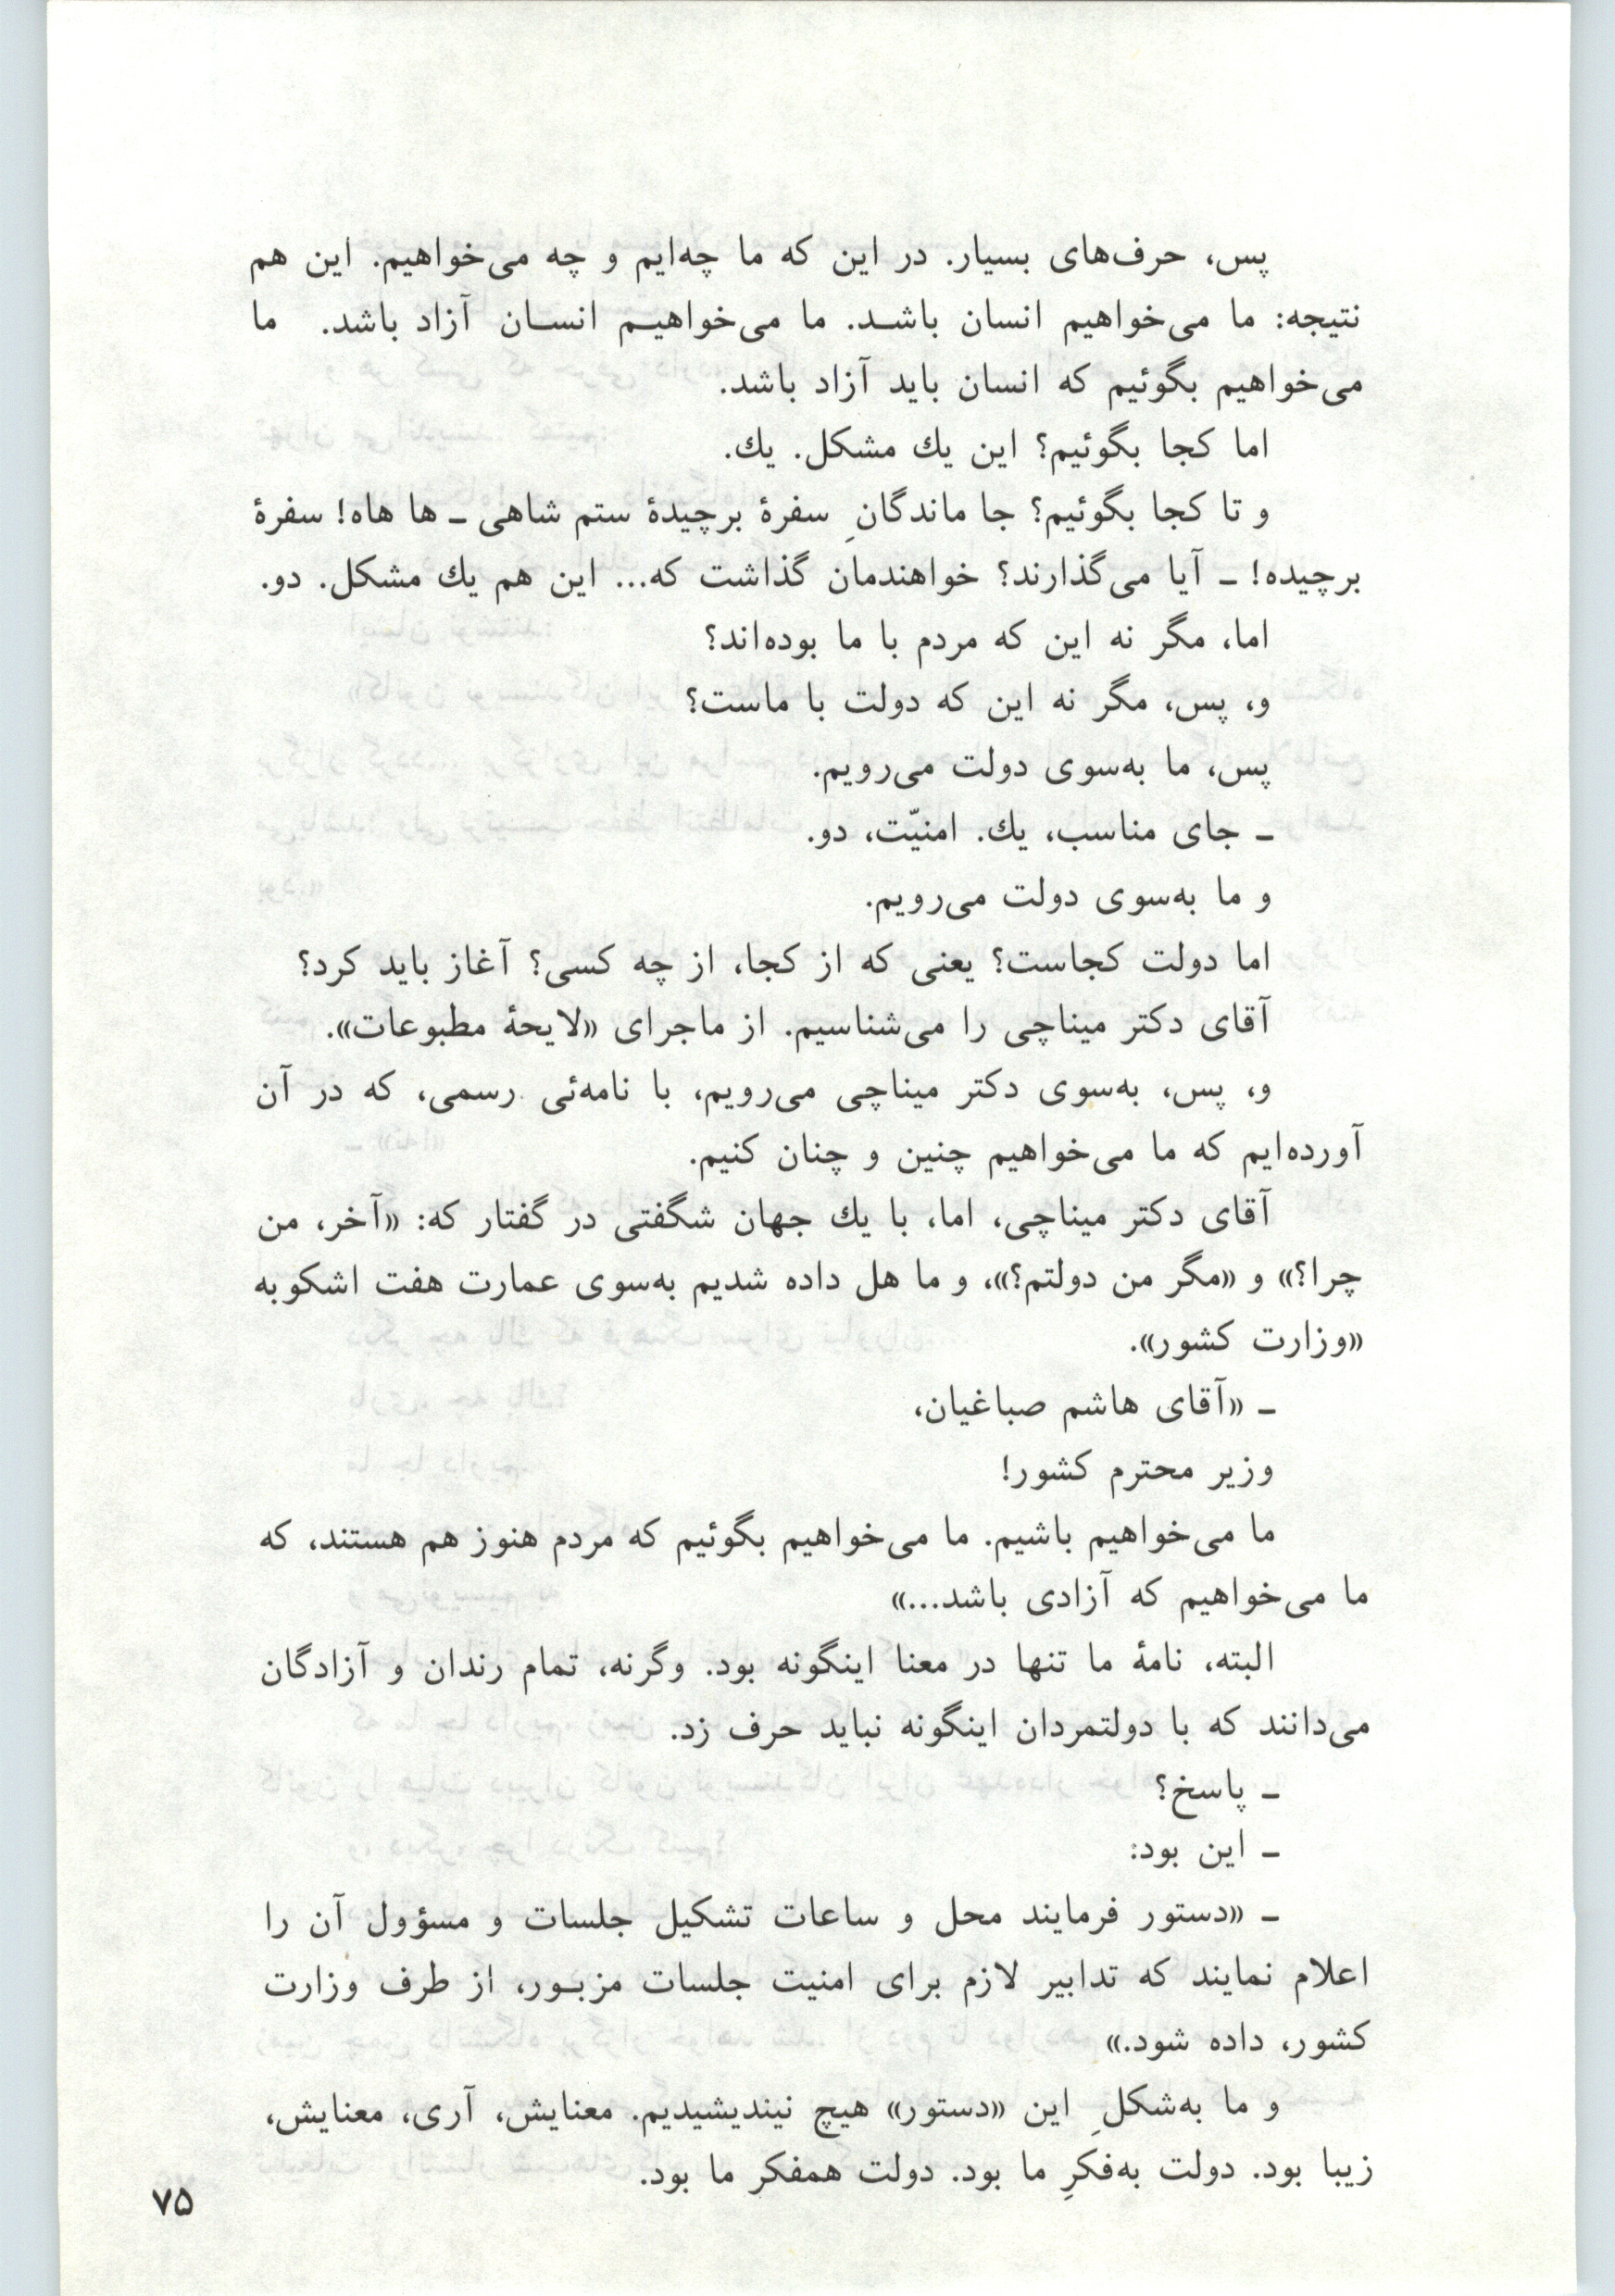 پس، حرف‌های بسیار. در این که ما چه‌ایم و چه می‌خواهیم. این هم
نتیجه: ما می‌خواهیم انسان باشد. ما می‌خواهیم انسان آزاد باشد. ما
می‌خواهیم بگوئیم که انسان باید آزاد باشد.
اما کجا بگوئیم؟ این یك مشکل. یك.
و تا کجا بگوئیم؟ جا ماندگانِ سفرهٔ برچیدهٔ ستم شاهی ـ ها هاه! سفرهٔ
برچیده! ـ آیا می‌گذارند؟ خواهندمان گذاشت که... این هم یك مشکل. دو.
اما، مگر نه این که مردم با ما بوده‌اند؟
و، پس، مگر نه این که دولت با ماست؟
پس، ما به‌سوی دولت می‌رویم.
ـ جای مناسب، یك. امنیّت، دو.
و ما به‌سوی دولت می‌رویم.
اما دولت کجاست؟ یعنی که از کجا، از چه کسی؟ آغاز باید کرد؟
آقای دکتر میناچی را می‌شناسیم. از ماجرای «لایحهٔ مطبوعات».
و، پس، به‌سوی دکتر میناچی می‌رویم، با نامه‌ئی رسمی، که در آن
آورده‌ایم که ما می‌خواهیم چنین و چنان کنیم.
آقای دکتر میناچی، اما، با یك جهان شگفتی در گفتار که: «آخر، من
چرا؟» و «مگر من دولتم؟»، و ما هل داده شدیم به‌سوی عمارت هفت اشکوبه
«وزارت کشور».
ـ «آقای هاشم صباغیان،
وزیر محترم کشور!
ما می‌خواهیم باشیم. ما می‌خواهیم بگوئیم که مردم هنوز هم هستند، که
ما می‌خواهیم که آزادی باشد...»
البته، نامهٔ ما تنها در معنا اینگونه بود. وگرنه، تمام رندان و آزادگان
می‌دانند که با دولتمردان اینگونه نباید حرف زد.
ـ پاسخ؟
ـ این بود:
ـ «دستور فرمایند محل و ساعات تشکیل جلسات و مسؤول آن را
اعلام نمایند که تدابیر لازم برای امنیت جلسات مزبور، از طرف وزارت
کشور، داده شود.»
و ما به‌شکلِ این «دستور» هیچ نیندیشیدیم. معنایش، آری، معنایش،
زیبا بود. دولت به‌فکرِ ما بود. دولت همفکر ما بود.
۷۵